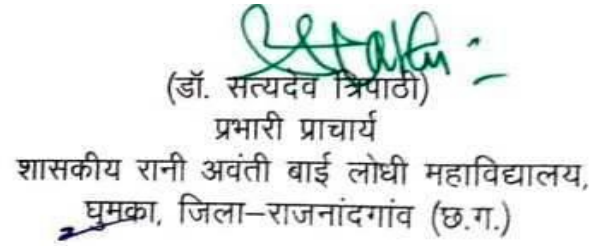 (डॉ. सत्यदेव त्रिपाठी)
प्रभारी प्राचार्य
शासकीय रानी अवंती बाई लोधी महाविद्यालय,
घुमका, जिला–राजनांदगांव (छ.ग.)